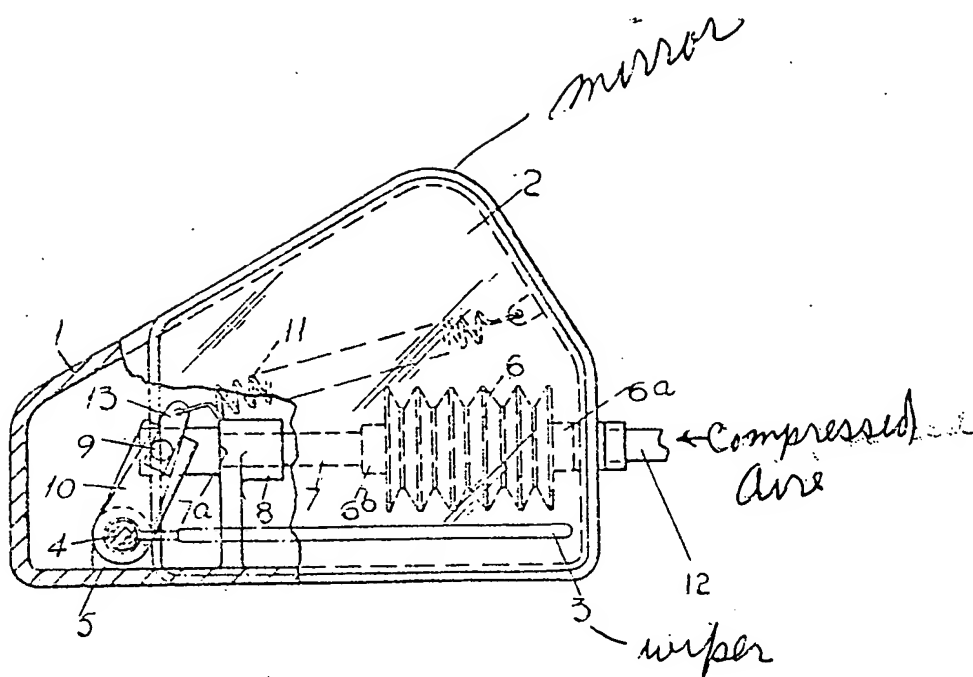 mirror
2
1
11
13
6
6a
9
Compressed
Aire
10
7a
8
7
6b
4
12
5
3
wiper